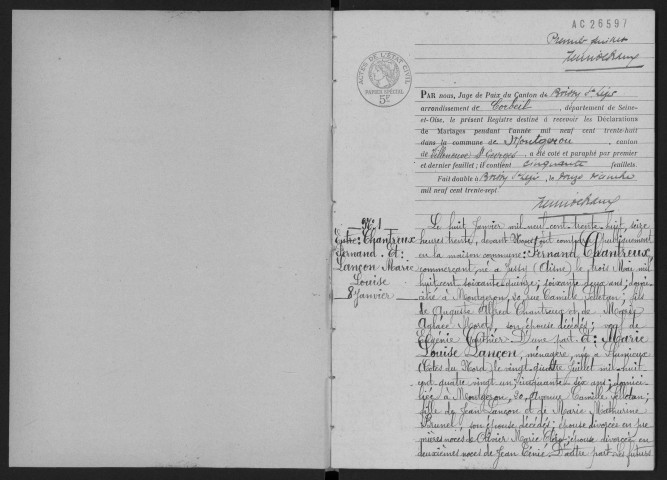 AC 26597
Premier
ACTES DE L'ÉTAT CIVIL
PAPIER SPÉCIAL
5F
PAR nous, Juge de Paix du Canton de Boissy St Léger
arrondissement de Corbeil, département de Seine-
et-Oise, le présent Registre destiné à recevoir les Déclarations
de Mariages pendant l'année mil neuf cent trente-huit
dans la commune de Montgeron, canton
de Villeneuve St Georges, a été coté et paraphé par premier
et dernier feuillet; il contient cinquante feuillets.
Fait double à Boissy St Léger, le douze
mil neuf cent trente-sept.
No 1
Entre: Chantreux
Fernand. Et:
Lançon Marie
Louise
8 Janvier
Le huit Janvier mil neuf cent trente huit, seize
heures trente, devant Nous ont comparu publiquement
en la maison commune: Fernand Chantreux,
commerçant, né à Jussy (Aisne) le trois Mai mil
huit cent soixante quinze; soixante deux ans; domi-
cilié à Montgeron, 20, rue Camille Pelletan; fils
de Auguste Alfred Chantreux et de
Aglaée son épouse décédés; veuf de
Eugénie Gauthier. D'une part. Et: Marie
Louise Lançon, ménagère, née à
(Côtes du Nord) le vingt quatre Juillet mil huit
cent quatre vingt un; cinquante six ans; domici-
liée à Montgeron, 20, avenue Camille Pelletan;
fille de Jean Lançon et de Marie Mathurine
Brunel, son épouse décédés; épouse divorcée en pre
mières noces de Olivier Marie épouse divorcée en
deuxièmes noces de Jean D'autre part. Les futurs